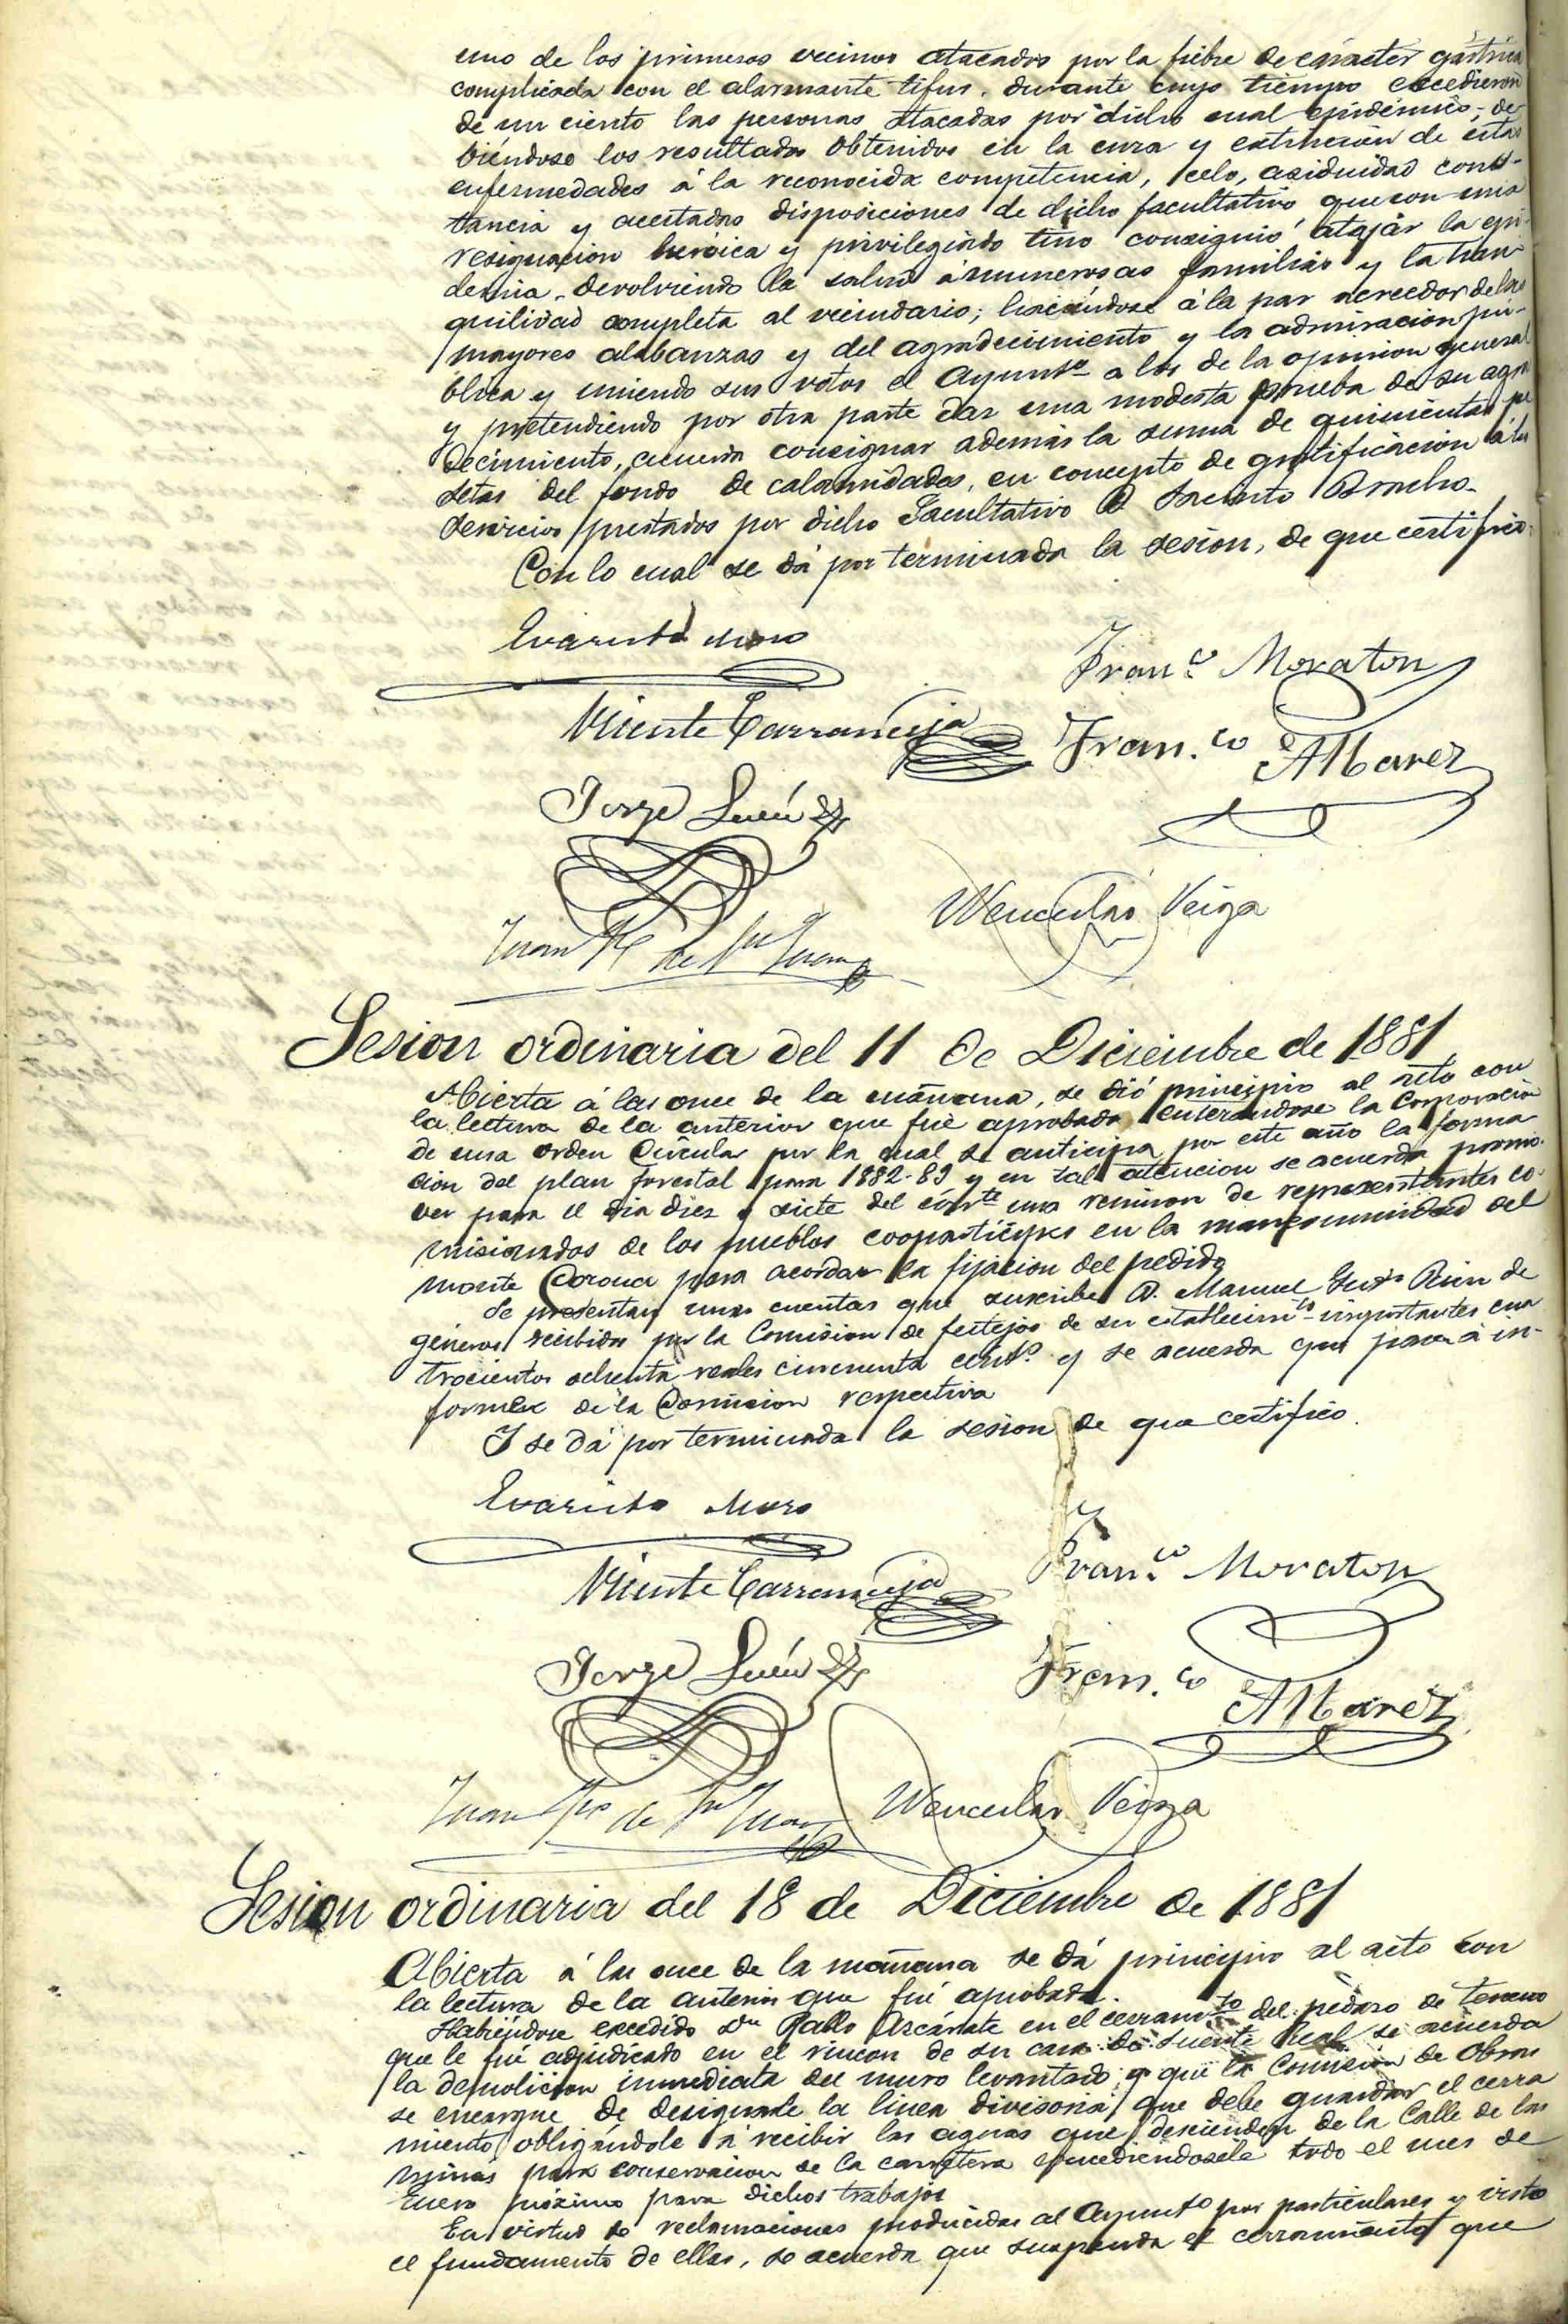 uno de los primeros vecinos atacados por la fiebre de carácter gástrica
complicada con el alarmante tifus, durante cuyo tiempo excedieron
de un ciento las personas atacadas por dicho mal epidémico, de-
biéndose los resultados obtenidos en la cura y estincion de estas
enfermedades á la reconocida competencia, celo, asiduidad cons-
tancia y acertadas disposiciones de dicho facultativo que con una
resignacion heróica y privilegiado tino consiguió atajar la epi-
demia, devolviendo la salud á numerosas familias y la tran-
quilidad completa al vecindario; haciéndose á la par acreedor de las
mayores alabanzas y del agradecimiento y la admiracion pú-
blica y uniendo sus votos el Ayuntº a los de la opinion general
y pretendiendo por otra parte dar una modesta prueba de su agra
decimiento, acuerda consignar además la suma de quinientas pe
setas del fondo de calamidades, en concepto de gratificacion á los
servicios prestados por dicho Facultativo D Jacinto
Con lo cual se dá por terminada la sesion, de que certifico.
Evaristo Muro
Franco Moraton
Vicente Carranceja
Fran.co Albarez
Jorge
Wenceslao Veiga
Juan de
Sesion ordinaria del 11 de Diciembre de 1881
Abierta á las once de la mañana, se dió principio al acto con
la lectura de la anterior que fué aprobada enterándose la Corporacion
de una orden Circular por la cual se anticipa por este año la forma
cion del plan forestal para 1882-83 y en tal atencion se acuerda promo-
ver para el dia diez y siete del corrte una reunion de representantes co-
misionados de los pueblos coopartícipes en la mancomunidad del
monte Corona para acordar la fijacion del pedido
Se presentan unas cuentas que suscribe D. Manuel de
géneros recibidos por la Comision de festejos de su establecimto importantes cua
trocientos ochenta reales cincuenta cénts. y se acuerda que pasen á in-
forme de la Comision respectiva
Y se dá por terminada la sesion de que certifico.
Evaristo Muro
Franco Moraton
Vicente Carranceja
Jorge
Fran.co Albarez
Juan de
Wenceslao Veiga
Sesion ordinaria del 18 de Diciembre de 1881
Abierta á las once de la mañana se dá principio al acto con
la lectura de la anterior que fué aprobada.
Habiéndose excedido Dn Pablo Azcárate en el cerramto del pedazo de terreno
que le fué adjudicado en el rincon de su casa de fuente Real se acuerda
la demolicion inmediata del muro levantado y que la Comision de Obras
se encargue de designarle la linea divisoria que debe guardar el cerra
miento, obligándole á recibir las aguas que descienden de la Calle de las
Minas para conservacion de la carretera concediendosele todo el mes de
Enero próximo para dichos trabajos
En virtud de reclamaciones producidas al Ayuntº por particulares y visto
el fundamento de ellas, se acuerda que suspenda el cerramiento que